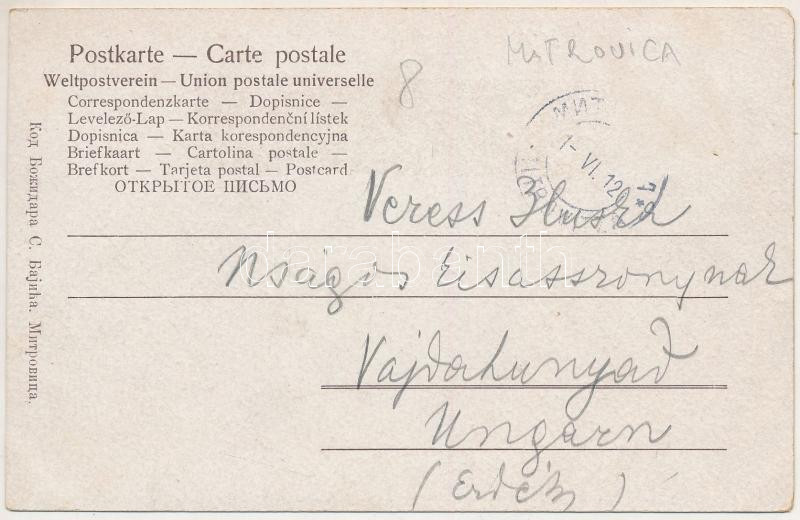 Postkarte — Carte postale
Weltpostverein — Union postale universelle
Correspondenzkarte — Dopisnice —
Levelező-Lap — Korrespondenční lístek
Dopisnica — Karta korespondencyjna
Briefkaart — Cartolina postale —
Brefkort — Tarjeta postal — Postcard
ОТКРЫТОЕ ПИСЬМО
MiTROVICA
8
МИТ
1- VI. 12
Veress
Nságos kisasszonynak
Vajdahunyad
Ungarn
(Erdély)
darabanth
Код Божидара С. Бајића. Митровица.